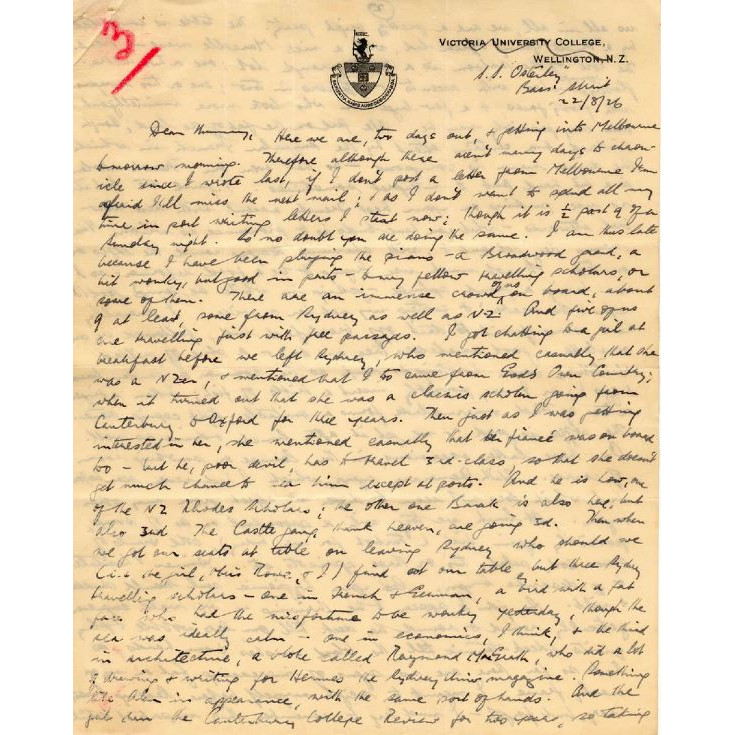 3/
VICTORIA UNIVERSITY COLLEGE,
WELLINGTON, N.Z.
S.S. Osterley"
Bass Strait
22/8/26
Dear Mummy, Here we are, two days out, & getting into Melbourne
tomorrow morning. Therefore although there aren't many days to chron-
icle since I wrote last, if I don't post a letter from Melbourne I'm
afraid I'll miss the next mail; & as I don't want to spend all my
time in port writing letters I start now; though it is ½ past 9 of a
Sunday night. So no doubt you are doing the same. I am this late
because I have been playing the piano – a Broadwood grand, a
bit wonky, but good in parts – to my fellow travelling scholars, or
some of them. There are an immense crowd of us on board, about
9 at least, some from Sydney as well as NZ. And five of us
are travelling first with free passages. I got chatting to a girl at
breakfast before we left Sydney, who mentioned casually that she
was a NZer, & mentioned that I too came from God's Own Country;
when it turned out that she was a classics scholar going from
Canterbury to Oxford for three years. Then just as I was getting
interested in her, she mentioned casually that her fiancé was on board
too – but he, poor devil, has to travel 3rd-class, so that she doesn't
get much chance to see him except at ports. And he is Low, one
of the NZ Rhodes Scholars; the other one Barak is also here, but
also 3rd. The Castle gang, thank heaven, are going 3d. Then when
we got our seats at table on leaving Sydney who should we
(i.e. the girl, Miss & I) find at our table but three Sydney
travelling scholars – one in French & German, a bird with a fat
face who had the misfortune to be wonky yesterday, though the
sea was ideally calm – one in economics, I think, & the third
in architecture, a bloke called Raymond McGrath, who did a lot
of drawing & writing for Hermes the Sydney Univ. magazine. Something
like Alan in appearance, with the same sort of hands. And the
girl ran the Canterbury College Review for two years, so taking